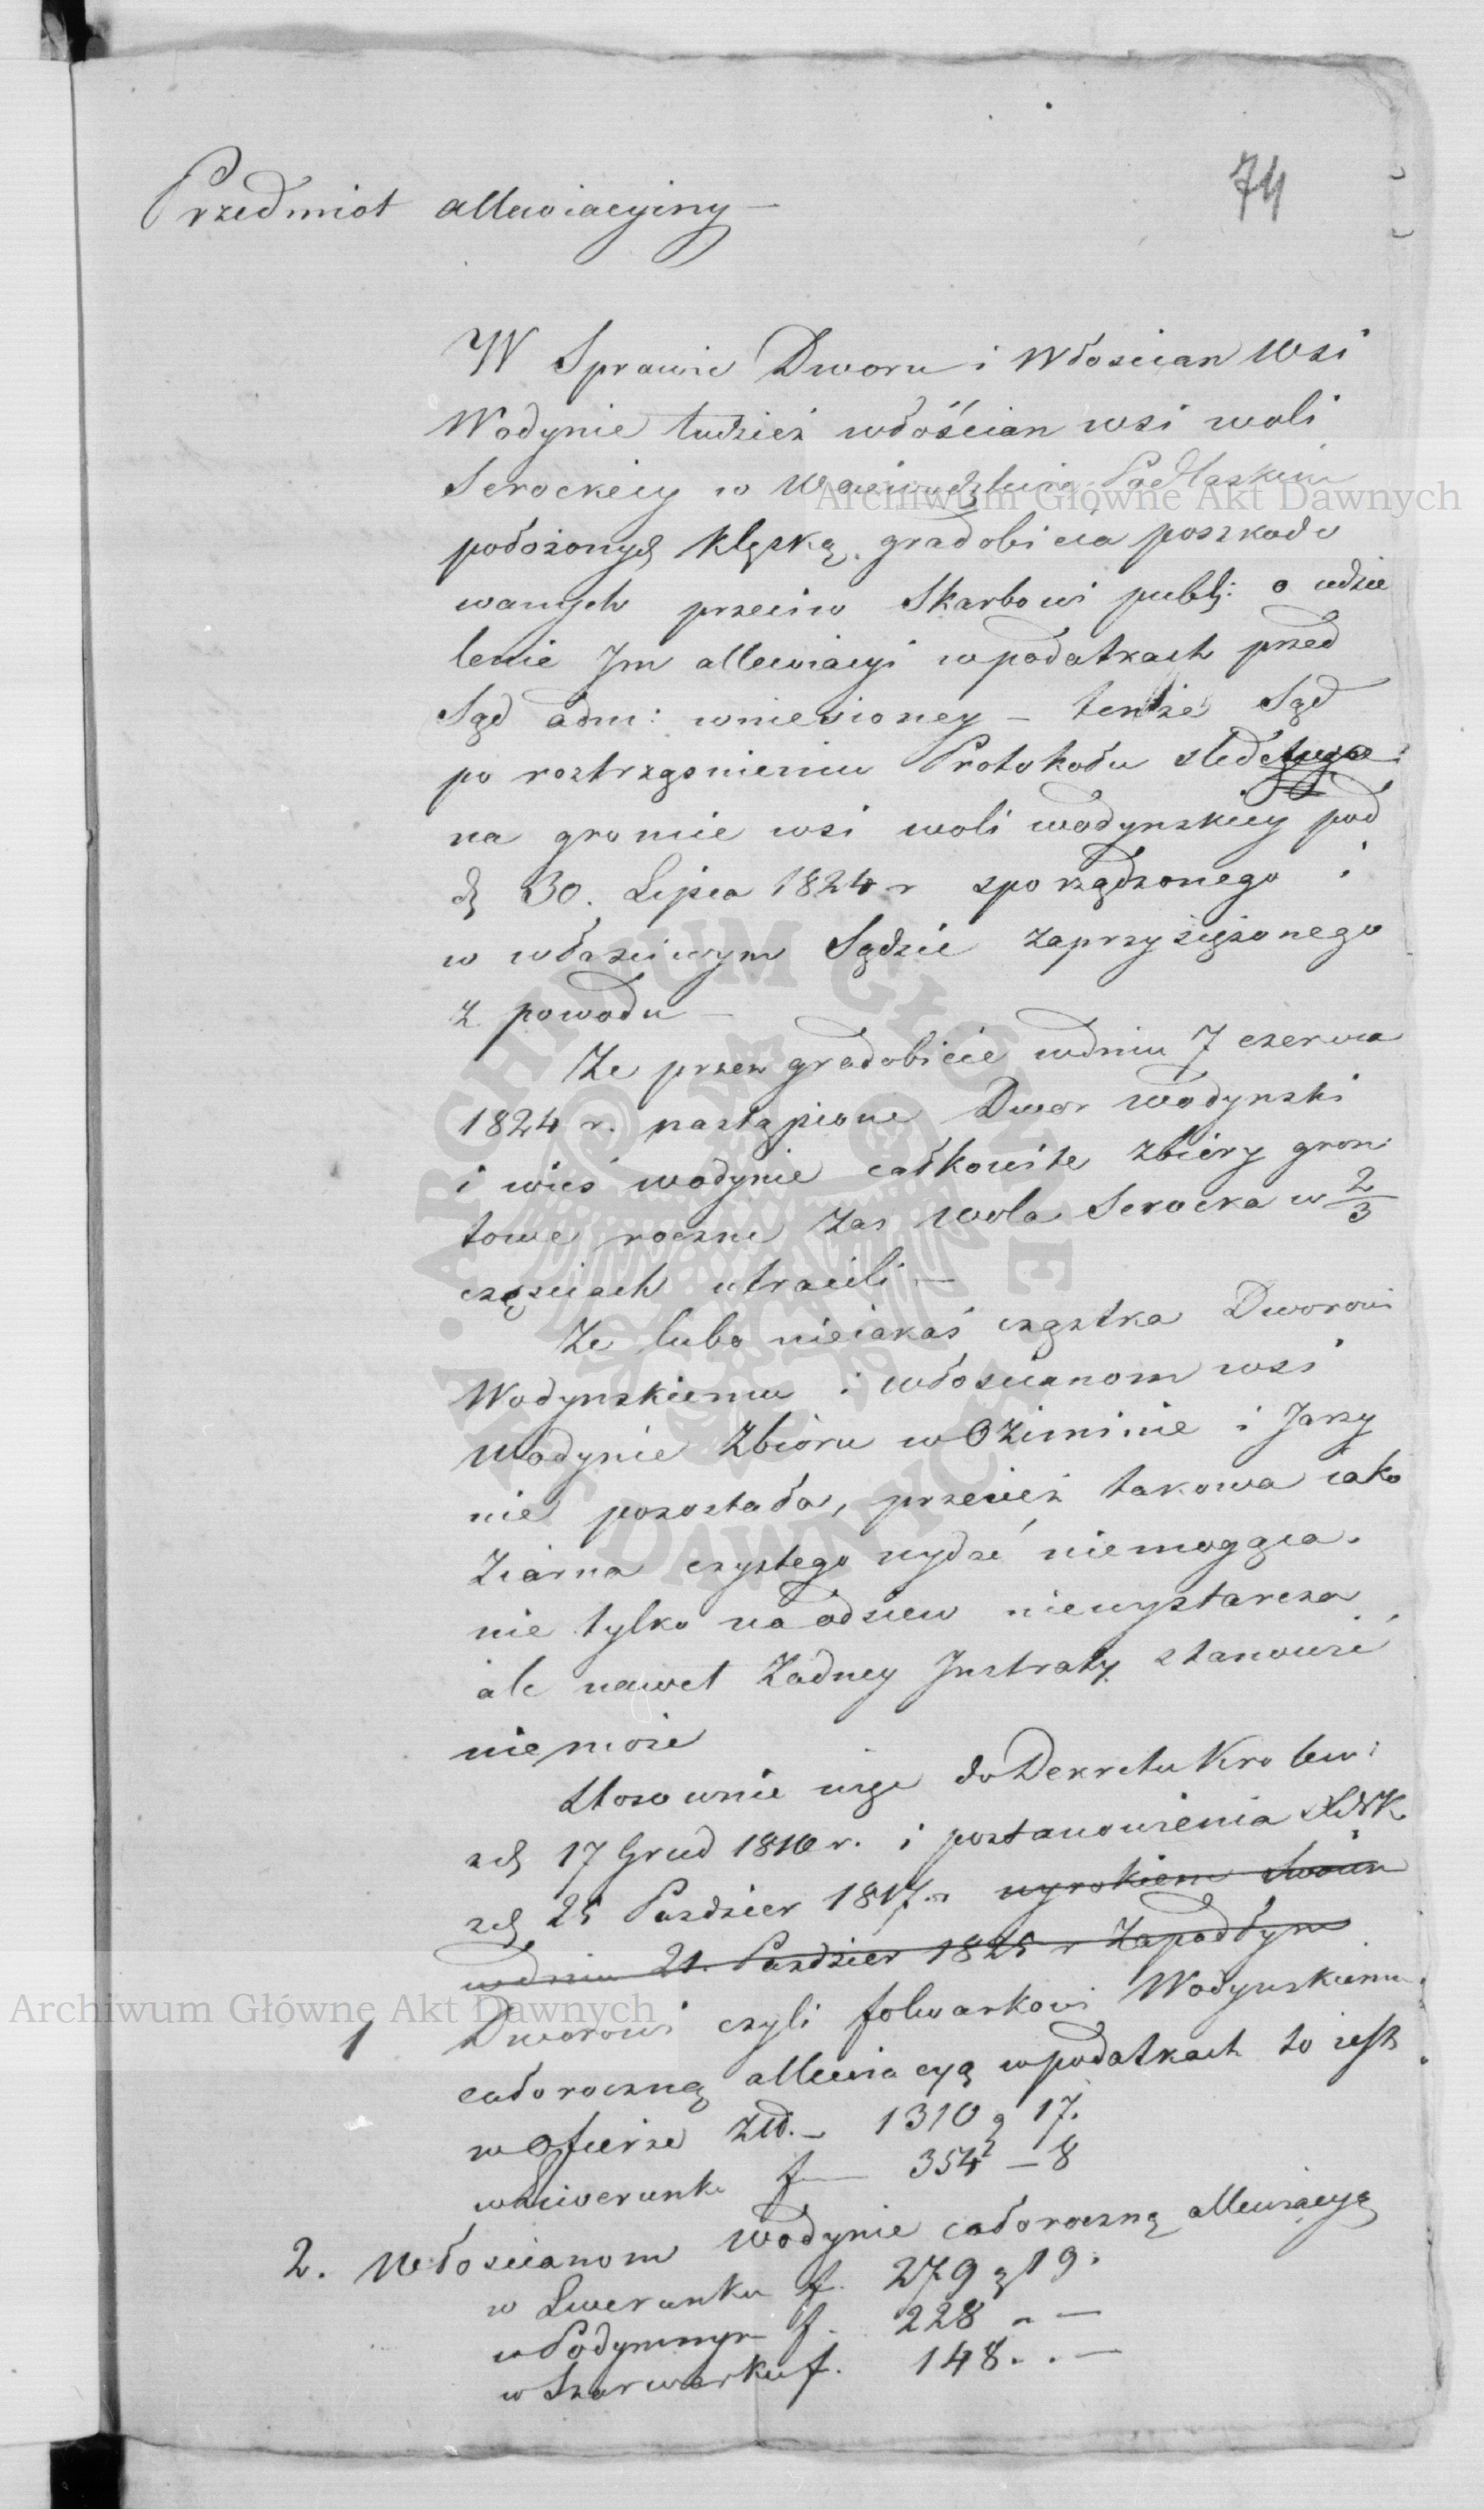 74
Przedmiot allewiacyjny —
W Sprawie Dworu i Włoscian Wsi
Wodynie tudzież włościan wsi woli
Serockiey w Wojewodztwie Podlaskim
położonych klęską gradobicia poszkodo
wanych przeciw Skarbowi publ: o udzie
lenie Jm allewiacyi w podatkach przed
Sąd adm: wniesioney — tenże Sąd
po roztrząsnieniu Protokołu sled:
na gruncie wsi woli wodynskiey pod
d. 30. Lipca 1824 r sporządzonego i
w własciwym Sądzie zaprzysiężonego
z powodu —
Ze przez gradobicie w dniu 7 czerwca
1824 r. nastąpione Dwor wodynski
i wieś wodynie całkowite zbiory gron
towe roczne zas wola Serocka w 2/3
częsciach utracili —
Ze lubo nieiakaś cząstka Dworowi
Wodynskiemu i włoscianom wsi
Wodynie Zbioru w Oziminie i Jarzy
nie pozostała, przecież takowa iako
Ziarna czystego wydać niemogąca
nie tylko na odsiew niewystarcza
ale nawet Zadney Jntraty stanowić
niemoże
Stosownie więc do Dekretu Krolew:
z d. 17 Grud 1810 r. i postanowienia XNK
z d. 25 Pazdzier 1817 r. wyrokiem swoim
w dniu 21. Pazdzier 1825 r Zapadłym
1 Dworowi czyli folwarkowi Wodynskiemu
całoroczną allewiacyą w podatkach to iest
w Ofierze Złł. — 1310 g 17.
w Liwerunku f — 354 — 8
2. Włoscianom Wodynie całoroczną allewiacyą
w Liwerunku f. 279 g 19.
w Podymnym f. 228 . —
w Szarwarku f. 148 . . —
Archiwum Główne Akt Dawnych
Archiwum Główne Akt Dawnych
ARCHIWUM GŁÓWNE AKT DAWNYCH